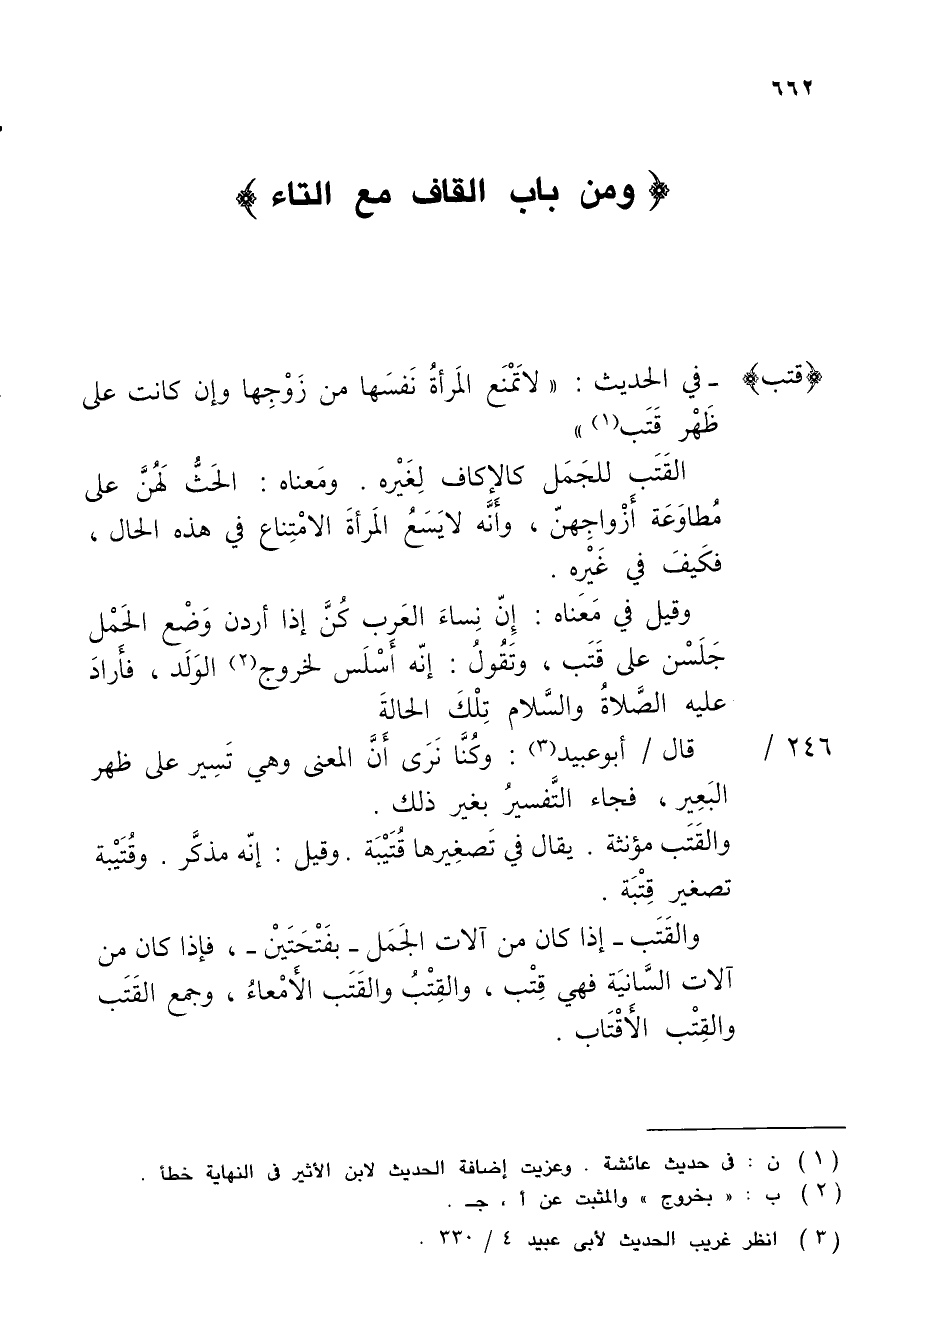 ٦٦٢
﴿ ومن باب القاف مع التاء ﴾
﴿قتب﴾ ـ في الحديث : « لاتَمْنَع المَرأةُ نَفسَها من زَوْجِها وإن كانت على
ظَهْر قَتَب(١) »
القَتَب للجَمَل كالإكاف لِغَيْره . ومَعناه : الحَثُّ لَهُنَّ على
مُطاوَعَة أَزْواجِهنّ ، وأَنَّه لايَسَعُ المَرأةَ الامْتِناع في هذه الحال ،
فكَيفَ في غَيْره .
وقيل في مَعْناه : إِنّ نِساءَ العَرب كُنَّ إذا أردن وَضْع الحَمْل
جَلَسْن على قَتَب ، وتَقُولُ : إنّه أَسْلَس لخروج(٢) الوَلَد ، فأَرادَ
عليه الصَّلاةُ والسَّلام تِلْكَ الحالةَ
٢٤٦ / قال / أبوعبيد(٣) : وكُنَّا نَرَى أَنَّ المعنى وهي تَسِير على ظهر
البَعِير ، فجاء التَّفسيرُ بغير ذلك .
والقَتَب مؤنثة . يقال في تَصغِيرها قُتَيْبَة . وقيل : إنّه مذكَّر . وقُتَيْبة
تصغير قِتْبَة .
والقَتَب ـ إذا كان من آلات الجَمَل ـ بفَتْحَتَيْن ـ ، فإذا كان من
آلات السَّانيَة فهي قِتْب ، والقِتْبُ والقَتَب الأَمْعاءُ ، وجمع القَتَب
والقِتْب الأَقْتَاب .
(١) ن : فى حديث عائشة . وعزيت إضافة الحديث لابن الأثير فى النهاية خطأ .
(٢) ب : « بخروج » والمثبت عن أ ، جـ .
(٣) انظر غريب الحديث لأبى عبيد ٤ / ٣٣٠ .